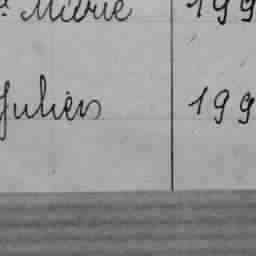 Marie 199
Julien 199